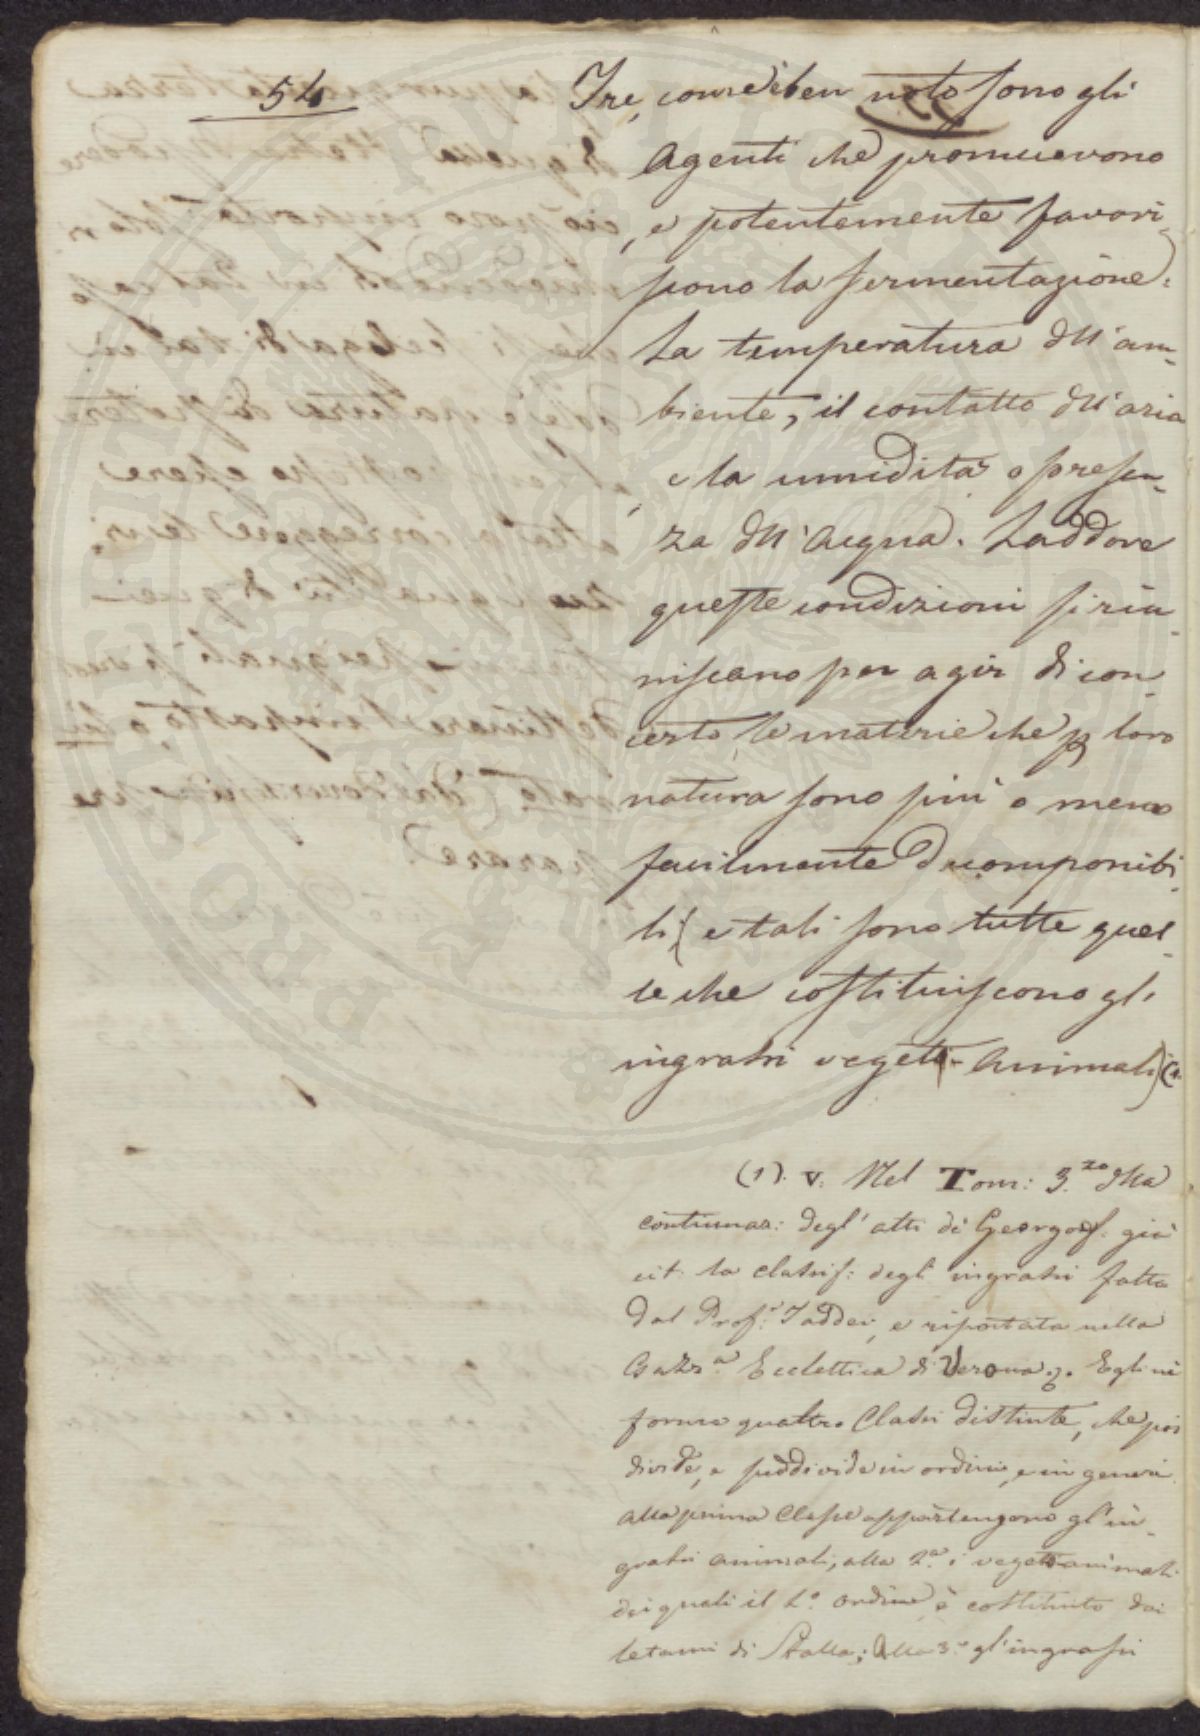 54
Tre, come è ben noto sono gli
Agenti che promuovono
, e potentemente favori-
scono la fermentazione:
La temperatura dell'am-
biente, il contatto dell'aria
, e la umidità o presen-
za dell'Acqua. Laddove
queste condizioni si riu-
niscano per agir di con-
certo, le materie che p loro
natura sono più o meno
facilmente decomponibi-
li (e tali sono tutte quel-
le che costituiscono gli
ingrassi vegeto-animali) (1.
(1). V. Nel Tom: 3.zo della
continuaz: degl'atti di Georgof. già
cit. la classif: degli ingrassi fatta
dal Prof.r Taddei, e riportata nella
Gazz.a Eclettica di Verona. Egli ne
forma quattro Classi distinte, che poi
divide, e suddivide in ordini, e in generi.
alla prima Classe appartengono gl'in-
grassi animali, alla 2.a i vegeto animali
dei quali il 1.o ordine è costituito dai
letami di Stalla; alla 3.a gl'ingrassi